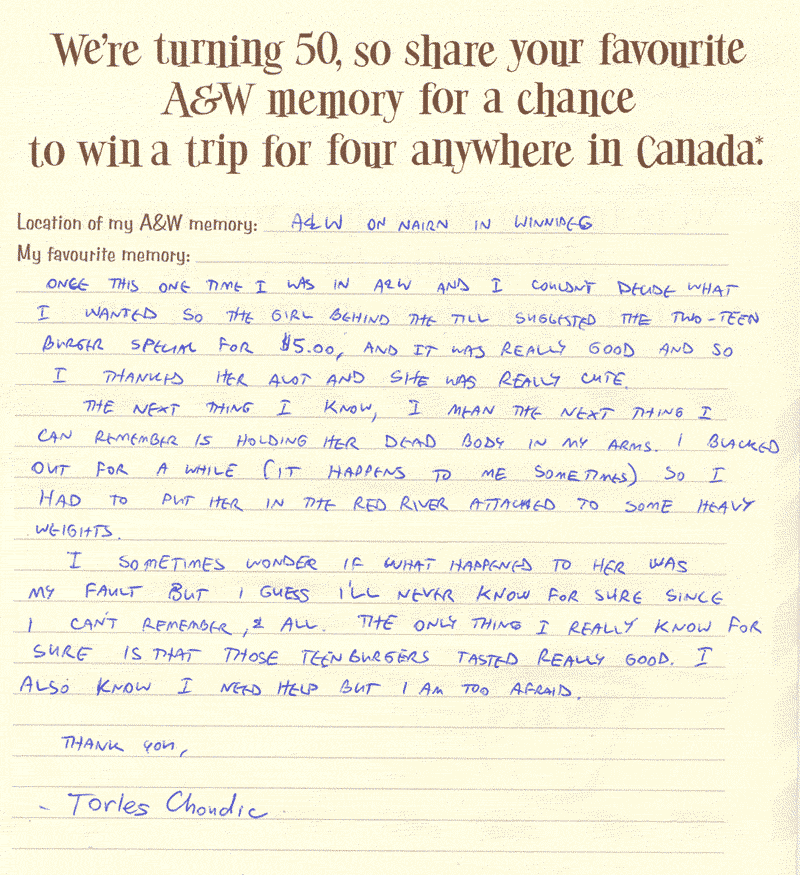 We're turning 50, so share your favourite
A&W memory for a chance
to win a trip for four anywhere in Canada.*
Location of my A&W memory: A&W ON NAIRN IN WINNIPEG
My favourite memory:
ONCE THIS ONE TIME I WAS IN A&W AND I COULDN'T DECIDE WHAT
I WANTED SO THE GIRL BEHIND THE TILL SUGGESTED THE TWO-TEEN
BURGER SPECIAL FOR $5.00, AND IT WAS REALLY GOOD AND SO
I THANKED HER ALOT AND SHE WAS REALLY CUTE.
THE NEXT THING I KNOW, I MEAN THE NEXT THING I
CAN REMEMBER IS HOLDING HER DEAD BODY IN MY ARMS. I BLACKED
OUT FOR A WHILE (IT HAPPENS TO ME SOMETIMES) SO I
HAD TO PUT HER IN THE RED RIVER ATTACHED TO SOME HEAVY
WEIGHTS.
I SOMETIMES WONDER IF WHAT HAPPENED TO HER WAS
MY FAULT BUT I GUESS I'LL NEVER KNOW FOR SURE SINCE
I CAN'T REMEMBER, & ALL. THE ONLY THING I REALLY KNOW FOR
SURE IS THAT THOSE TEEN BURGERS TASTED REALLY GOOD. I
ALSO KNOW I NEED HELP BUT I AM TOO AFRAID.
THANK YOU,
- Torles Chondic